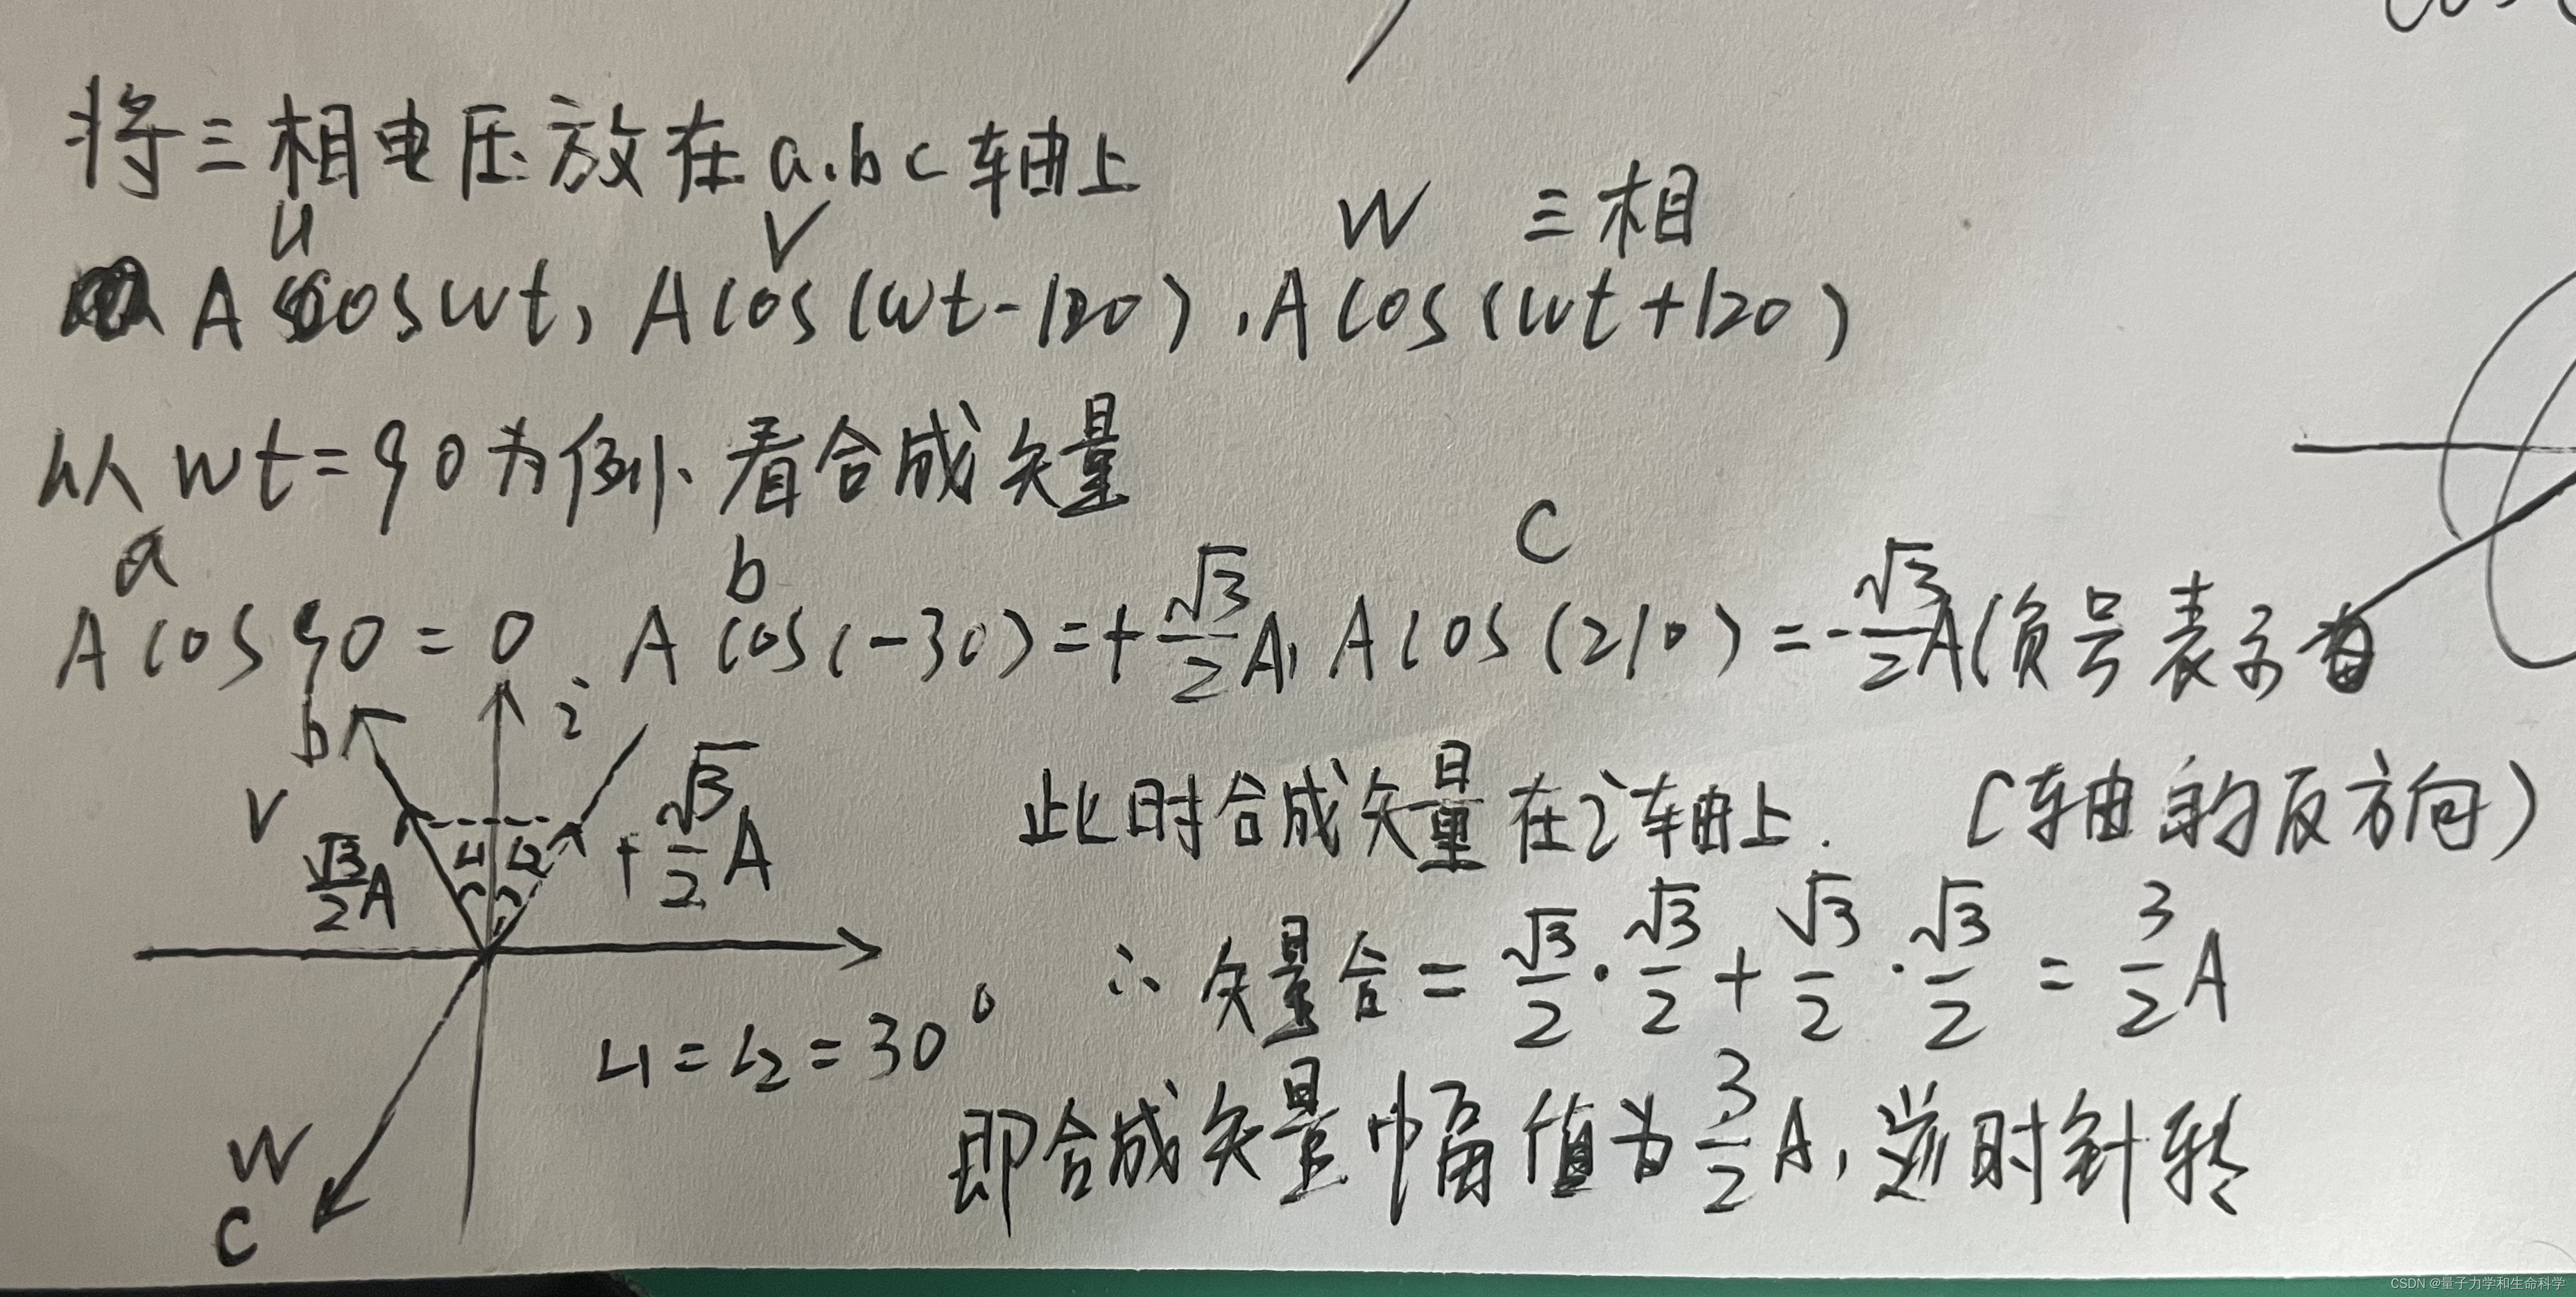 将三相电压放在a.b c轴上
U V W 三相
A cos wt, A cos (wt-120), A cos (wt+120)
从 wt=90为例、看合成矢量
a b C
A cos 90 = 0 A cos(-30) = + √3/2 A, A cos (210) = - √3/2 A (负号表示
C轴的反方向)
b i
V √3/2 A ∠1 ∠2 + √3/2 A
此时合成矢量在i轴上.
∴ 矢量合 = √3/2 · √3/2 + √3/2 · √3/2 = 3/2 A
∠1 = ∠2 = 30°
即合成矢量幅值为 3/2 A, 逆时针转
W
C
CSDN @量子力学和生命科学